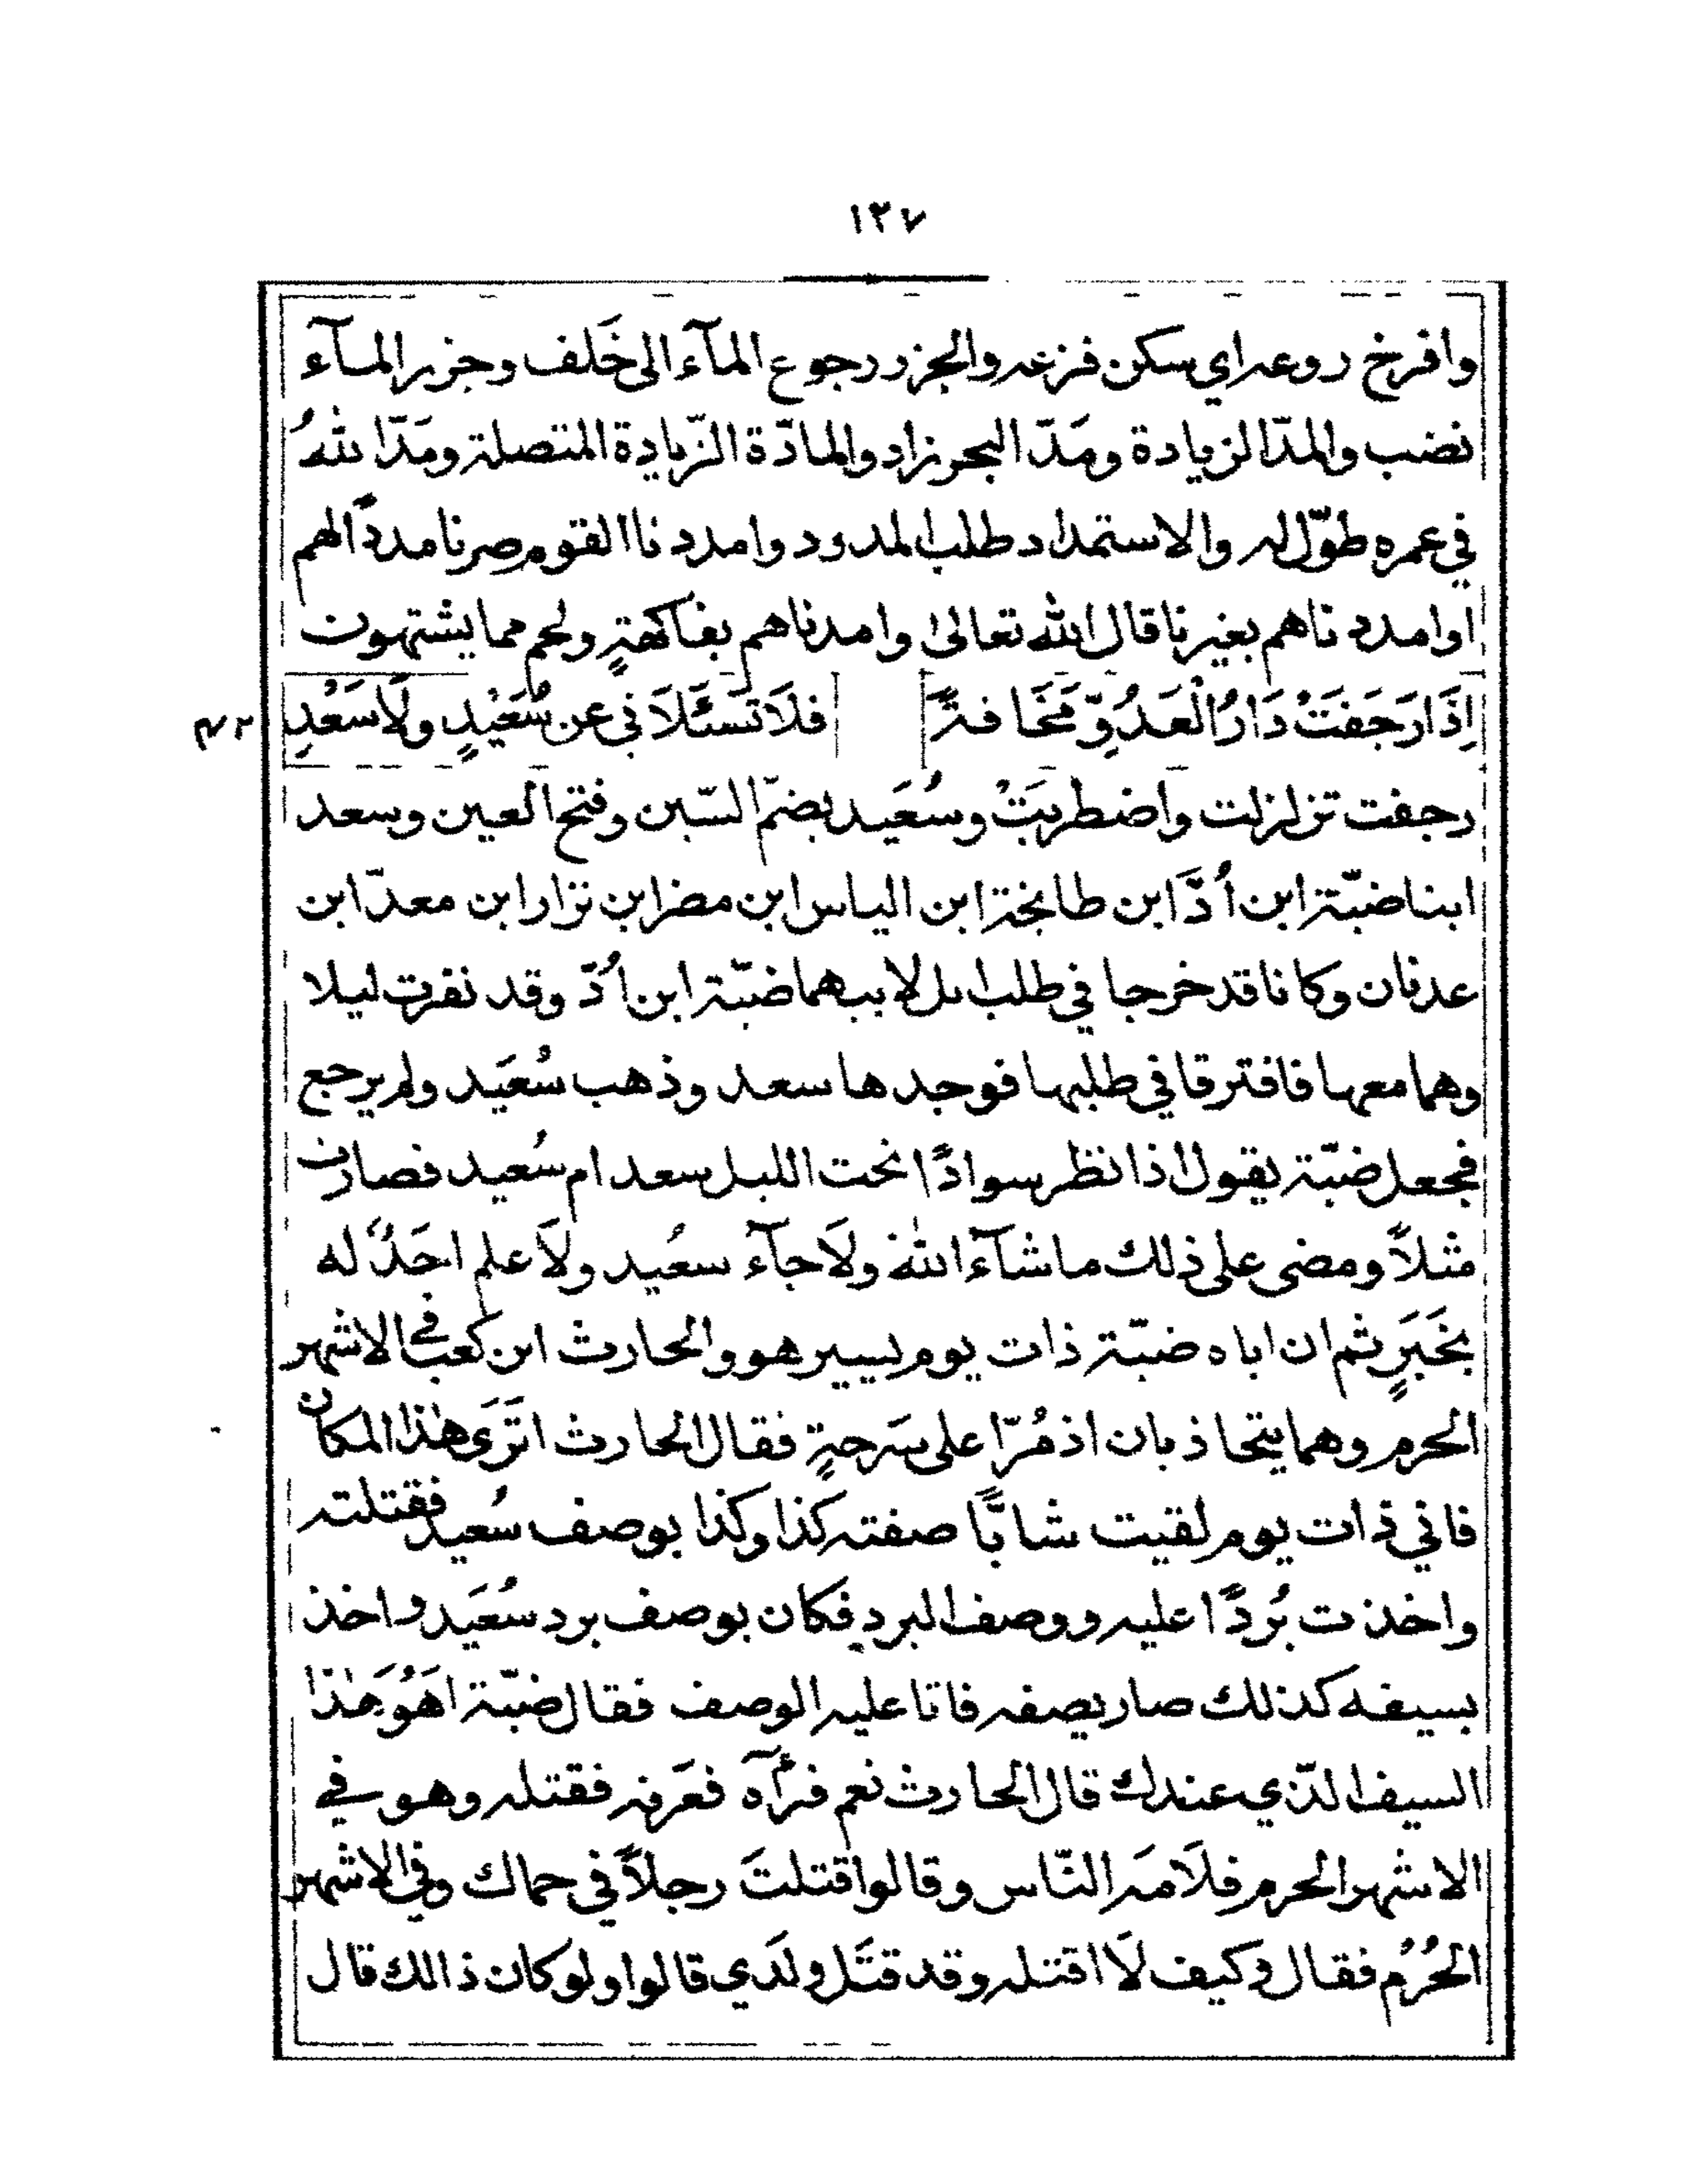 ١٢٧
وافرخ روعه اي سكن فزعه والجزر رجوع المآء الى خَلف وجزر المآء
نضب والمدّ الزيادة ومَدّ البحر زاد والمادّة الزّيادة المتصلة ومَدّ اللهُ
في عمره طوّل له والاستمداد طلب المدود وامددنا القوم صرنا مددًا لهم
او امددناهم بغيرنا قال الله تعالى وامددناهم بفاكهةٍ ولحم مما يشتهون
اِذَا رَجَفَتْ دَارُ الْعَدُوِّ مَخَافةً فلَا تَسئَلَا ني عن سُعَيْدٍ ولَا سَعْدِ
رجفت تزلزلت واضطربَتْ وسُعَيد بضمّ السّين وفتح العين وسعد
ابنا ضبّة ابن اُدَّ ابن طابخة ابن الياس ابن مضر ابن نزار ابن معدّ ابن
عدنان وكانا قد خرجا في طلب ابل لابيهما ضبّة ابن اُدّ وقد نفرت ليلا
وهما معها فافترقا في طلبها فوجدها سعد وذهب سُعَيد ولم يرجع
فجعل ضبّة يقول اذا نظر سوادًا تحت الليل سعد ام سُعيد فصارت
مثلاً ومضى على ذلك ما شآء اللهُ ولَا جآء سعُيد ولَا علم احَدٌ له
بخَبَرٍ ثم ان اباه ضبّة ذات يوم يسير هو والحارث ابن كعب في الاشهر
الحرم وهما يتحاذبان اذ مُرّا على سَرحةٍ فقال الحارث اتَرَى هٰذا المكان
فاني ذات يوم لقيت شابًّا صفته كذا وكذا بوصف سُعيد فقتلته
واخذت بُردًا عليه ووصف البرد فكان بوصف برد سُعَيد واخذ
بسيفه كذلك صار يصفه فاتا عليه الوصف فقال ضبّة اهَوُ هٰذا
السيف الّذي عندك قال الحارث نعم فرأآه فعَرفه فقتله وهو في
الاشهر الحرم فلَامَه النّاس وقالوا قتلتَ رجلاً في حماك وفي الاشهر
الحُرُم فقال وكيف لَا اقتله وقد قتَل ولَدي قالوا ولو كان ذالك قال